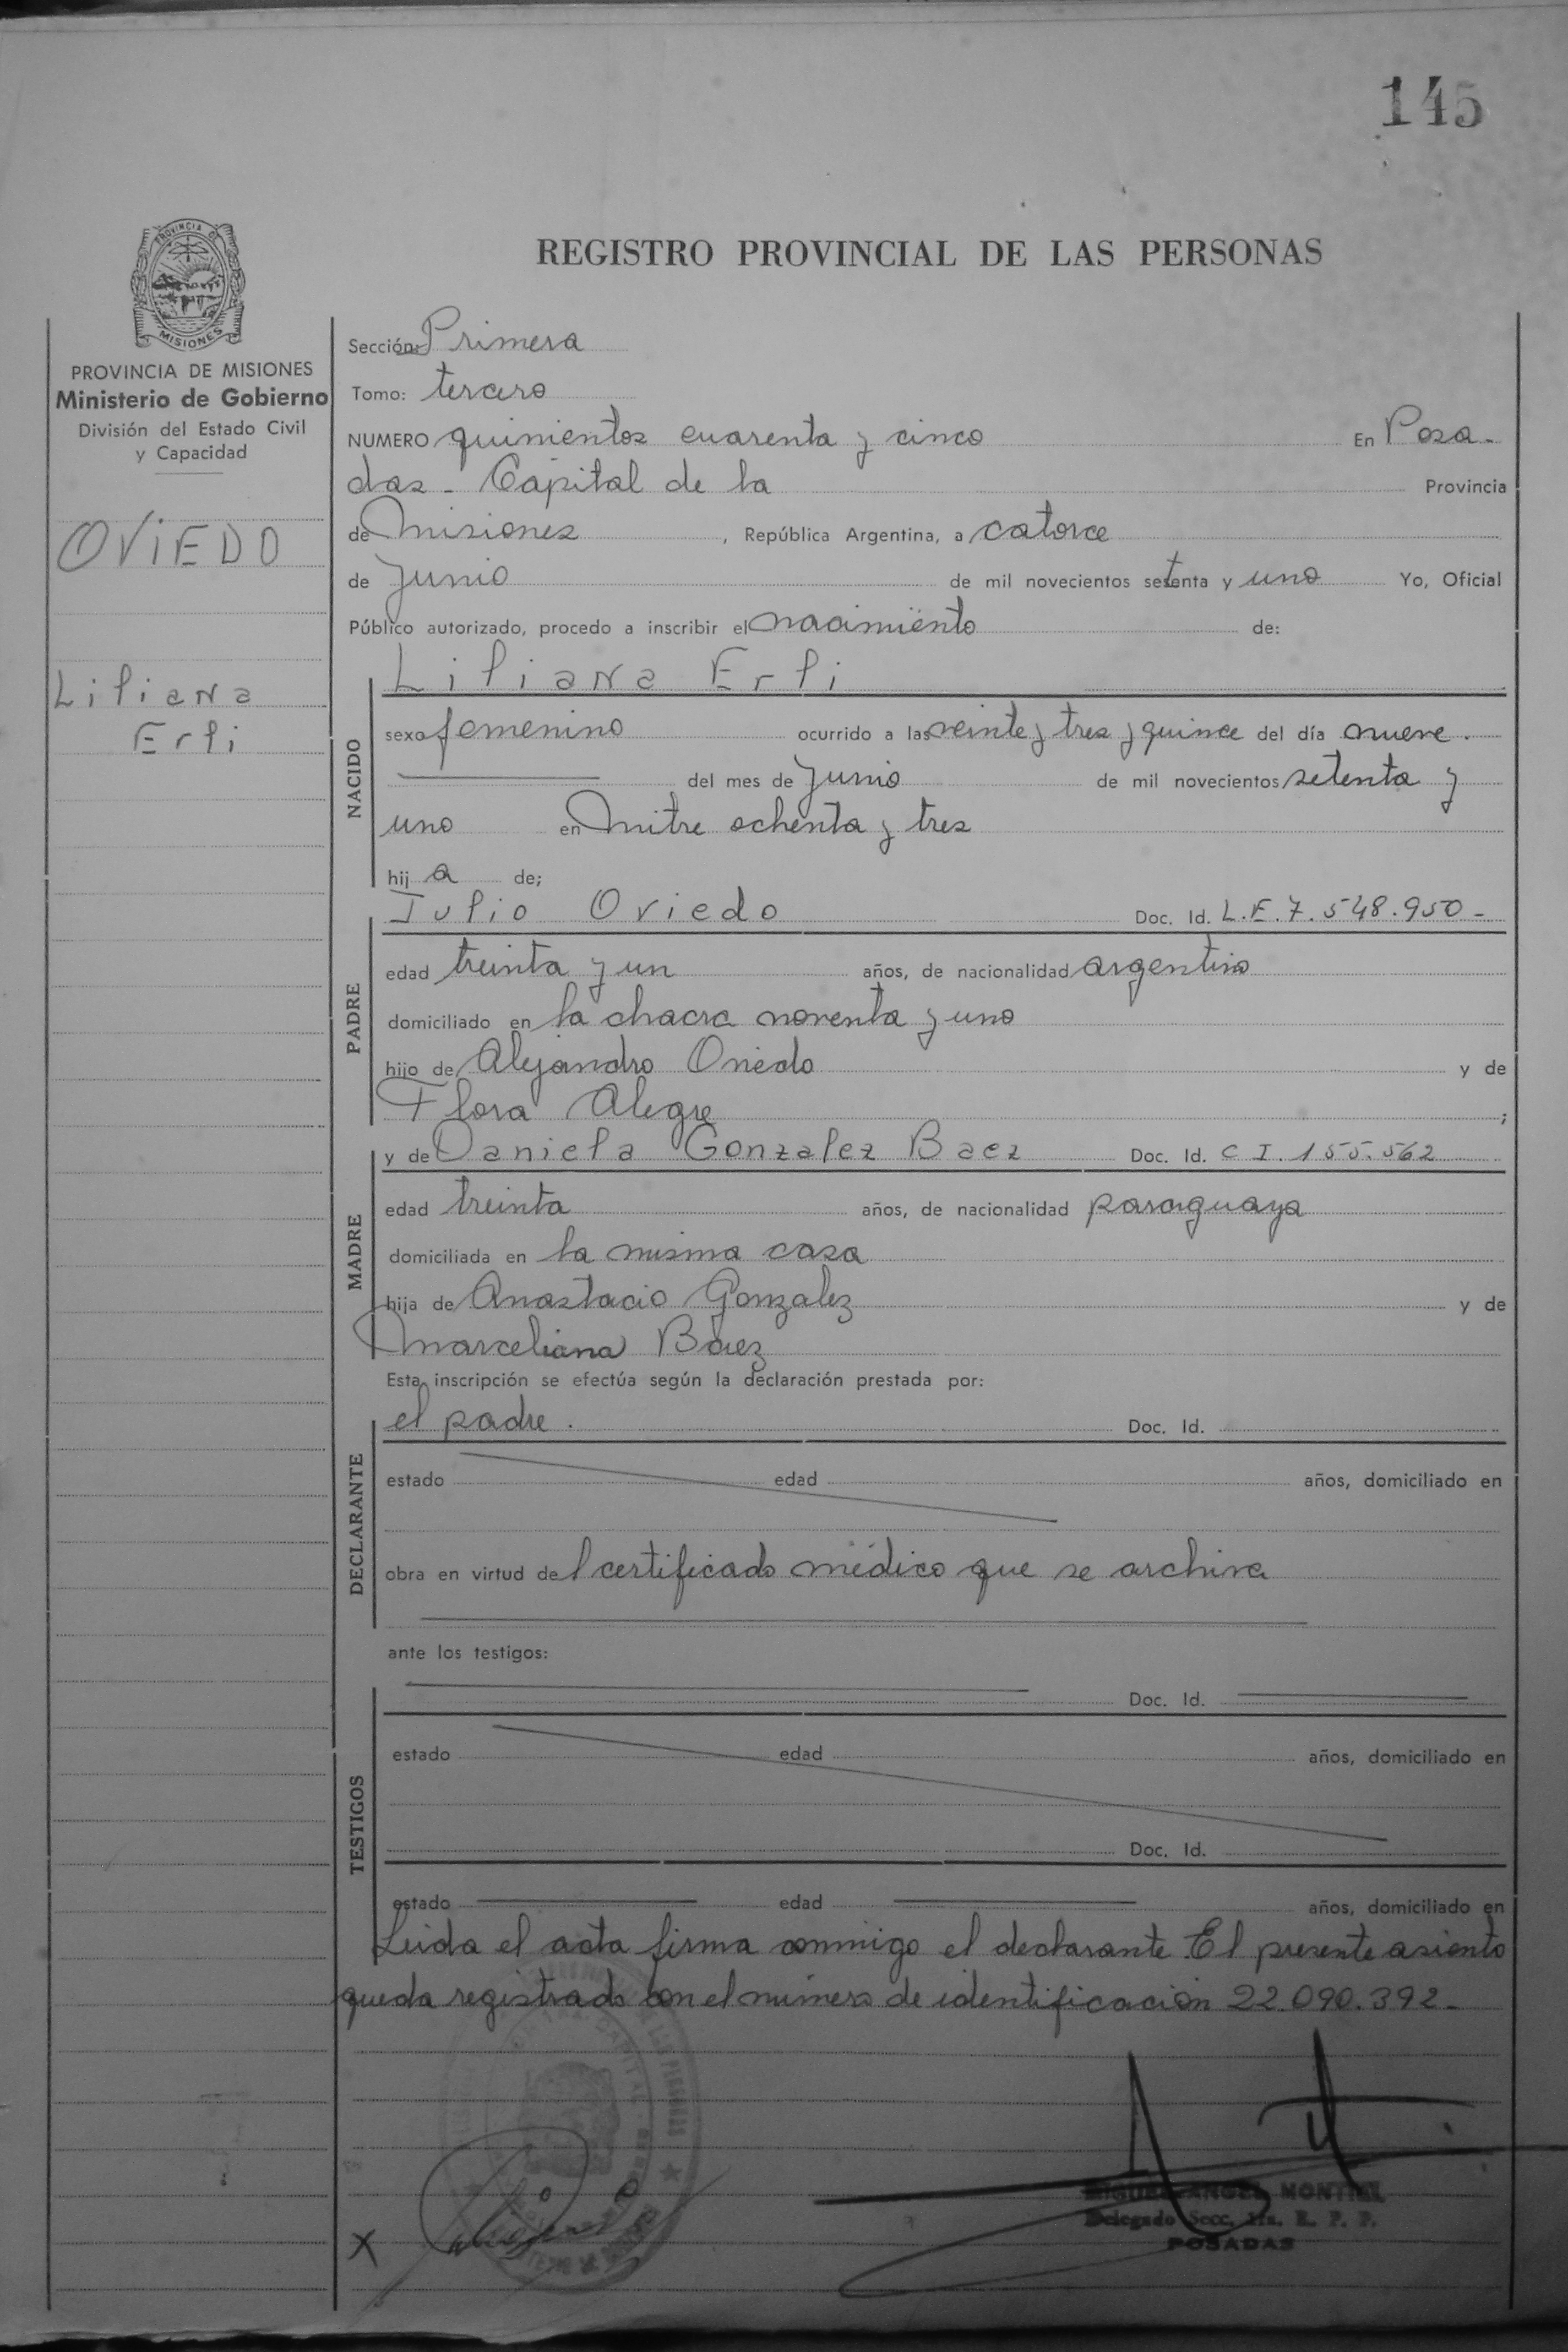 145
REGISTRO PROVINCIAL DE LAS PERSONAS
PROVINCIA DE MISIONES
PROVINCIA DE MISIONES
Ministerio de Gobierno
División del Estado Civil
y Capacidad
OViEDO
Liliana
Erli
Sección: Primera
Tomo: tercero
NUMERO quinientos cuarenta y cinco En Posa-
das - Capital de la Provincia
de Misiones, República Argentina, a catorce
de Junio de mil novecientos setenta y uno Yo, Oficial
Público autorizado, procedo a inscribir el nacimiento de:
NACIDO
Liliana Erli
sexo femenino ocurrido a las veinte y tres y quince del día nueve.
del mes de Junio de mil novecientos setenta y
uno en Mitre ochenta y tres
hija de;
PADRE
Julio Oviedo Doc. Id. L.E.7.548.950-
edad treinta y un años, de nacionalidad argentino
domiciliado en la chacra noventa y uno
hijo de Alejandro Oviedo y de
Flora Alegre;
MADRE
y de Daniela Gonzalez Baez Doc. Id. C I. 155.562
edad treinta años, de nacionalidad paraguaya
domiciliada en la misma casa
hija de Anastacio Gonzalez y de
Marceliana Báez
Esta inscripción se efectúa según la declaración prestada por:
DECLARANTE
el padre. Doc. Id.
estado edad años, domiciliado en
obra en virtud del certificado médico que se archiva
ante los testigos:
TESTIGOS
Doc. Id.
estado edad años, domiciliado en
Doc. Id.
estado edad años, domiciliado en
Leida el acta firma conmigo el declarante. El presente asiento
queda registrado con el número de identificación 22.090.392-
X
MIGUEL ANGEL MONTIEL
Delegado Secc. 1ra. R. P. P.
POSADAS